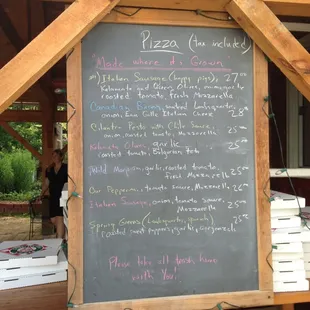 Pizza (tax included)
Made where it's Grown
Italian Sausage (happy pigs), 27.00
Kalamata and Green Olives, Onion,
roasted tomato, fresh Mozzarella
Canadian Bacon, smoked
onion, Italian Cheese 28.00
Cilantro Pesto with Chile Sauce,
onion, roasted tomato, Mozzarella 25.00
Kalamata Olives, garlic
roasted tomato, feta 25.00
Wild Mushroom, garlic, roasted tomato,
fresh Mozzarella 25.00
Our Pepperoni, tomato sauce, Mozzarella 26.00
Italian Sausage, onion, tomato sauce,
Mozzarella 25.00
Spring Greens
roasted sweet peppers, garlic, Gorgonzola 25.00
Please take all trash home
with You!